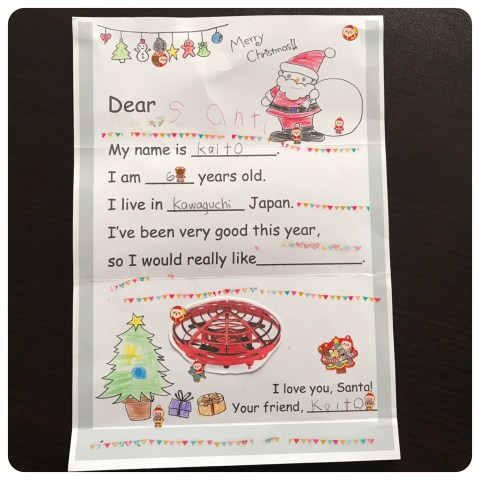 Merry
Christmas!!
Dear
My name is kaito.
I am 6 years old.
I live in Kawaguchi Japan.
I've been very good this year,
so I would really like____________.
I love you, Santa!
Your friend, Kaito